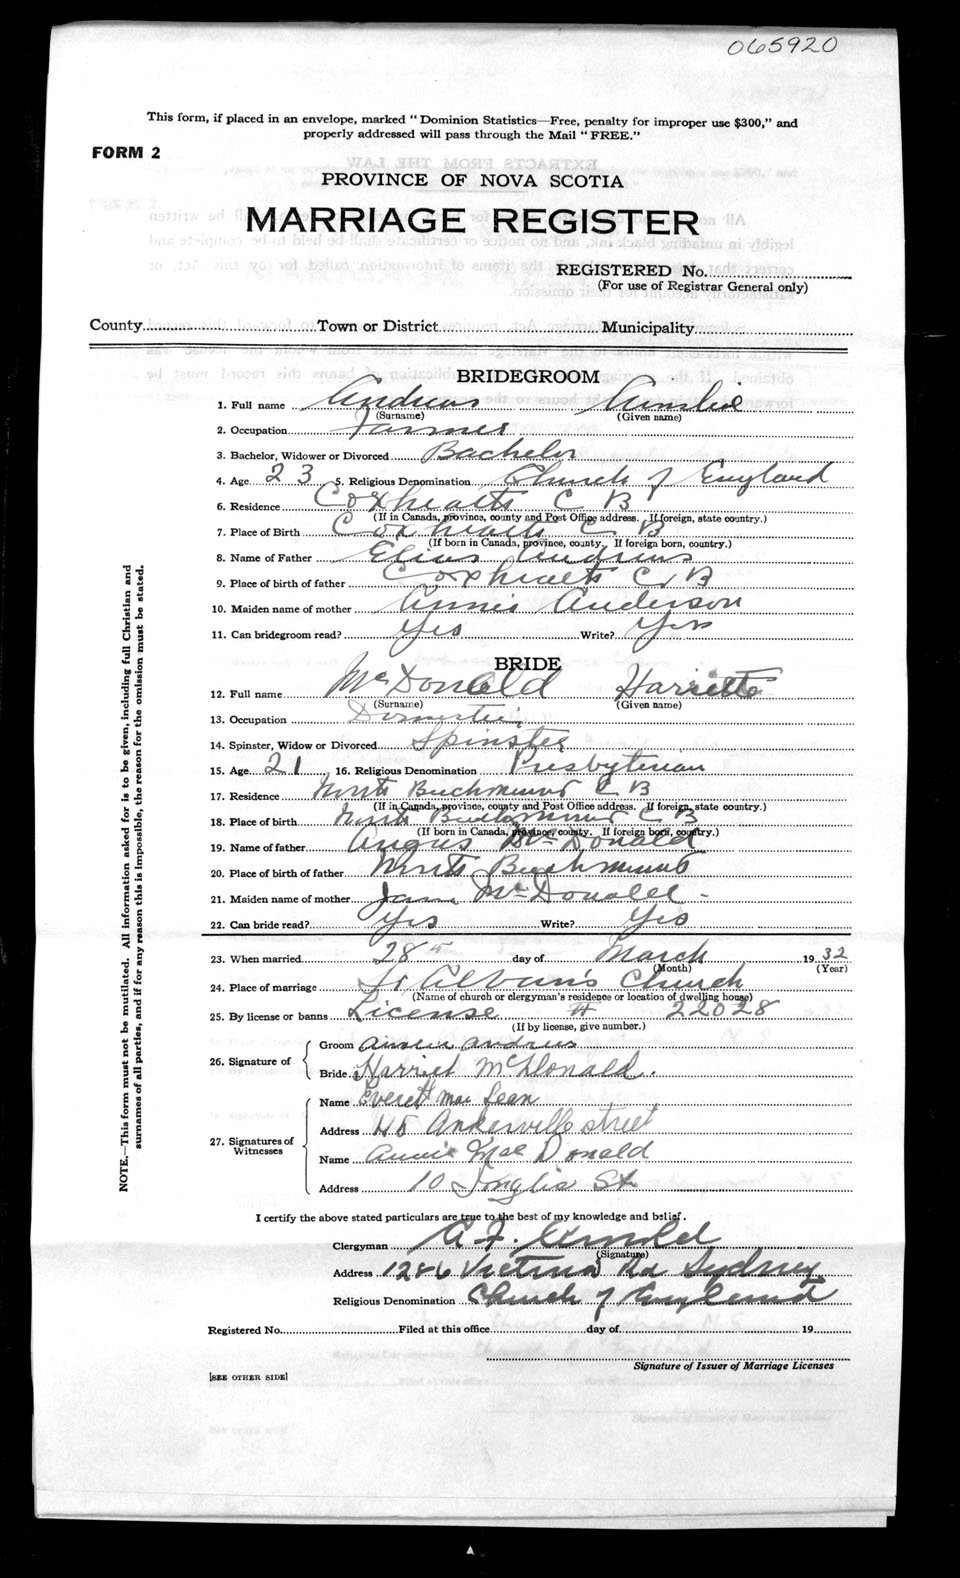 065920
This form, if placed in an envelope, marked "Dominion Statistics—Free, penalty for improper use $300," and
properly addressed will pass through the Mail "FREE."
FORM 2
PROVINCE OF NOVA SCOTIA
MARRIAGE REGISTER
REGISTERED No.
(For use of Registrar General only)
County Town or District Municipality
BRIDEGROOM
1. Full name Andrews Ainslie
(Surname) (Given name)
2. Occupation Farmer
3. Bachelor, Widower or Divorced Bachelor
4. Age 23 5. Religious Denomination Church of England
6. Residence Coxheath C B
(If in Canada, province, county and Post Office address. If foreign, state country.)
7. Place of Birth Coxheath C B
(If born in Canada, province, county. If foreign born, country.)
8. Name of Father Elias Andrews
9. Place of birth of father Coxheath C B
10. Maiden name of mother Annie Anderson
11. Can bridegroom read? Yes Write? Yes
BRIDE
12. Full name McDonald Harriett
(Surname) (Given name)
13. Occupation Domestic
14. Spinster, Widow or Divorced Spinster
15. Age 21 16. Religious Denomination Presbyterian
17. Residence North C B
(If in Canada, province, county and Post Office address. If foreign, state country.)
18. Place of birth North C B
(If born in Canada, province, county. If foreign born, country.)
19. Name of father Angus McDonald
20. Place of birth of father North
21. Maiden name of mother Jane McDonald -
22. Can bride read? Yes Write? Yes
23. When married 28th day of March 1932
(Month) (Year)
24. Place of marriage St Alban's Church
(Name of church or clergyman's residence or location of dwelling house)
25. By license or banns License # 22028
(If by license, give number.)
26. Signature of
Groom Ainslie Andrews
Bride Harriet McDonald.
27. Signatures of Witnesses
Name Everett Mac Lean
Address 45 street
Name Annie Mac Donald
Address 10 St
I certify the above stated particulars are true to the best of my knowledge and belief.
Clergyman A. F. Arnold
(Signature)
Address 1286 Victoria Rd Sydney
Religious Denomination Church of England
Registered No. Filed at this office day of 19
Signature of Issuer of Marriage Licenses
[SEE OTHER SIDE]
NOTE.—This form must not be mutilated. All information asked for is to be given, including full Christian and
surnames of all parties, and if for any reason this is impossible, the reason for the omission must be stated.
EXTRACTS FROM THE LAW